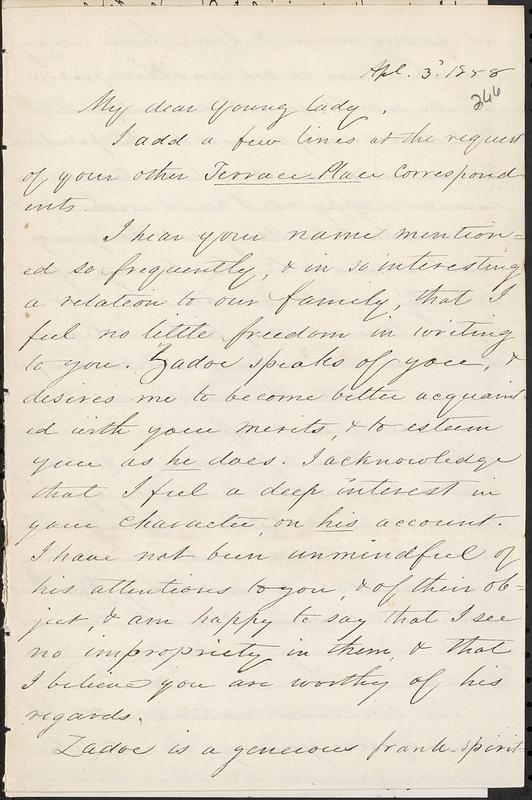 Apl. 3d 1858
266
My dear Young Lady,
I add a few lines at the request
of your other Terrace Place Correspond
ents.
I hear your name mention=
ed so frequently, & in so interesting
a relation to our family, that I
feel no little freedom in writing
to you. Zadoc speaks of you, &
desires me to become better acquaint
ed with your merits, & to esteem
you as he does. I acknowledge
that I feel a deep interest in
your character, on his account.
I have not been unmindful of
his attentions to you, & of their ob=
ject, & am happy to say that I see
no impropriety in them, & that
I believe you are worthy of his
regards.
Zadoc is a generous frank-spirit